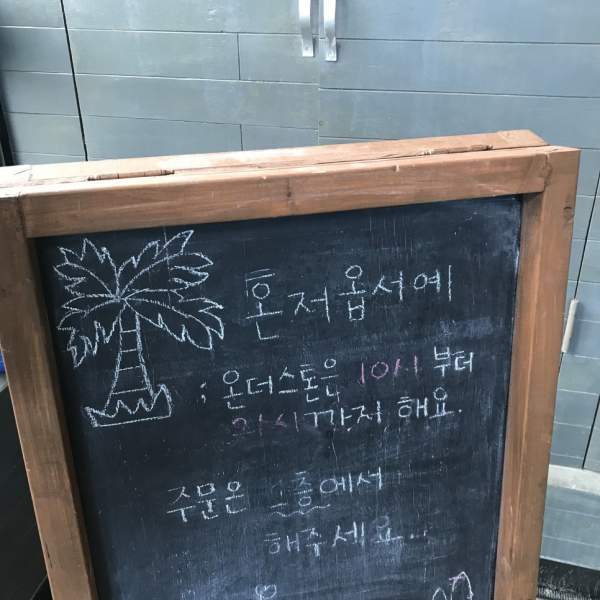 혼저옵서예
: 온더스톤은 10시 부터
21시까지 해요.
주문은 층에서
해주세요...